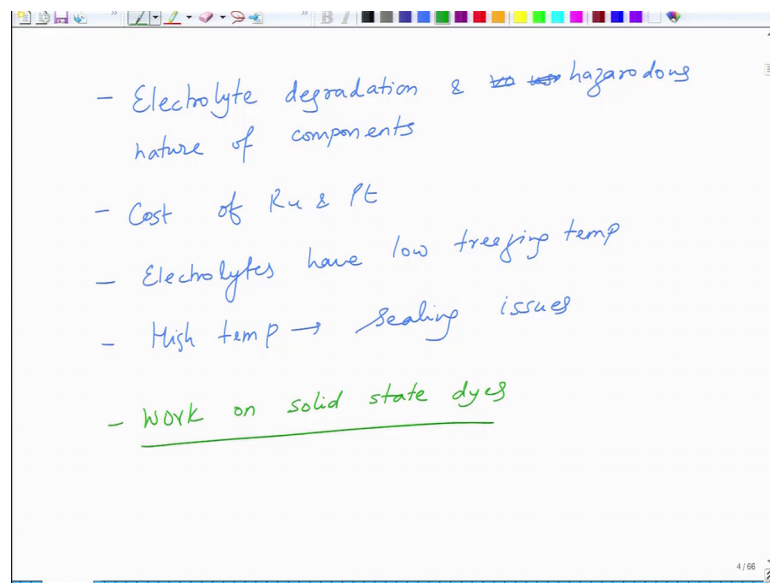 - Electrolyte degradation & hazarodous
nature of components
- Cost of Ru & Pt
- Electrolytes have low freezing temp
- High temp → Sealing issues
- Work on solid state dyes
4 / 66